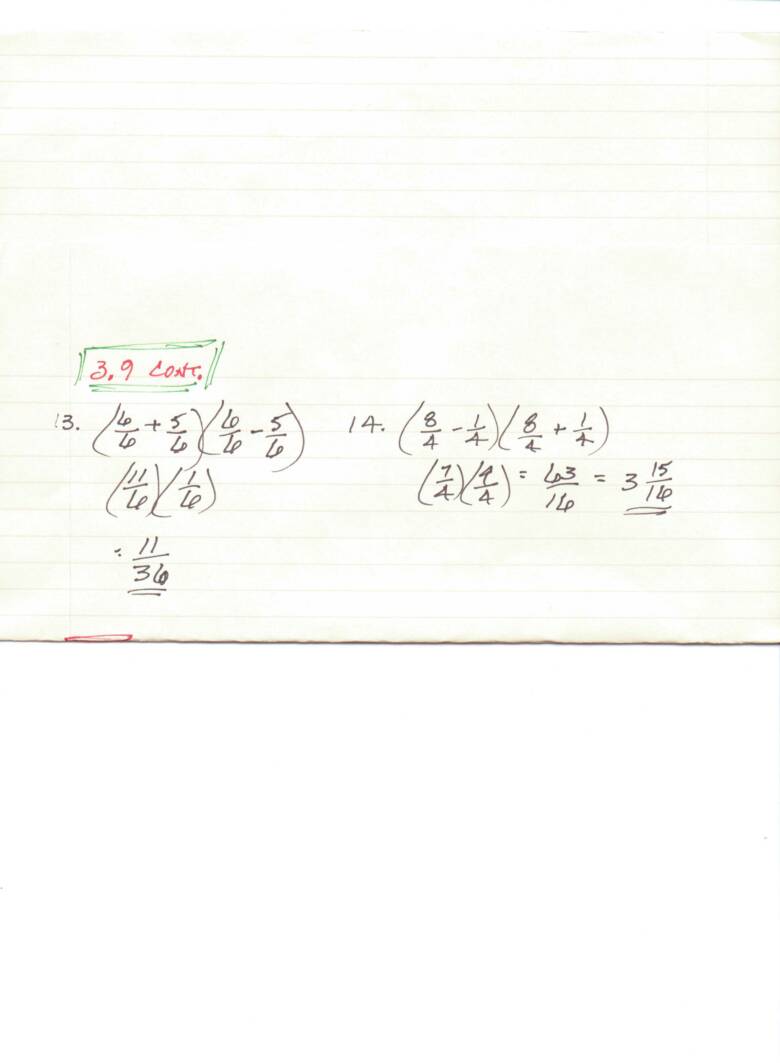 3.9 CONT.
13. (6/6 + 5/6)(6/6 - 5/6)
(11/6)(1/6)
= 11/36
14. (8/4 - 1/4)(8/4 + 1/4)
(7/4)(9/4) = 63/16 = 3 15/16